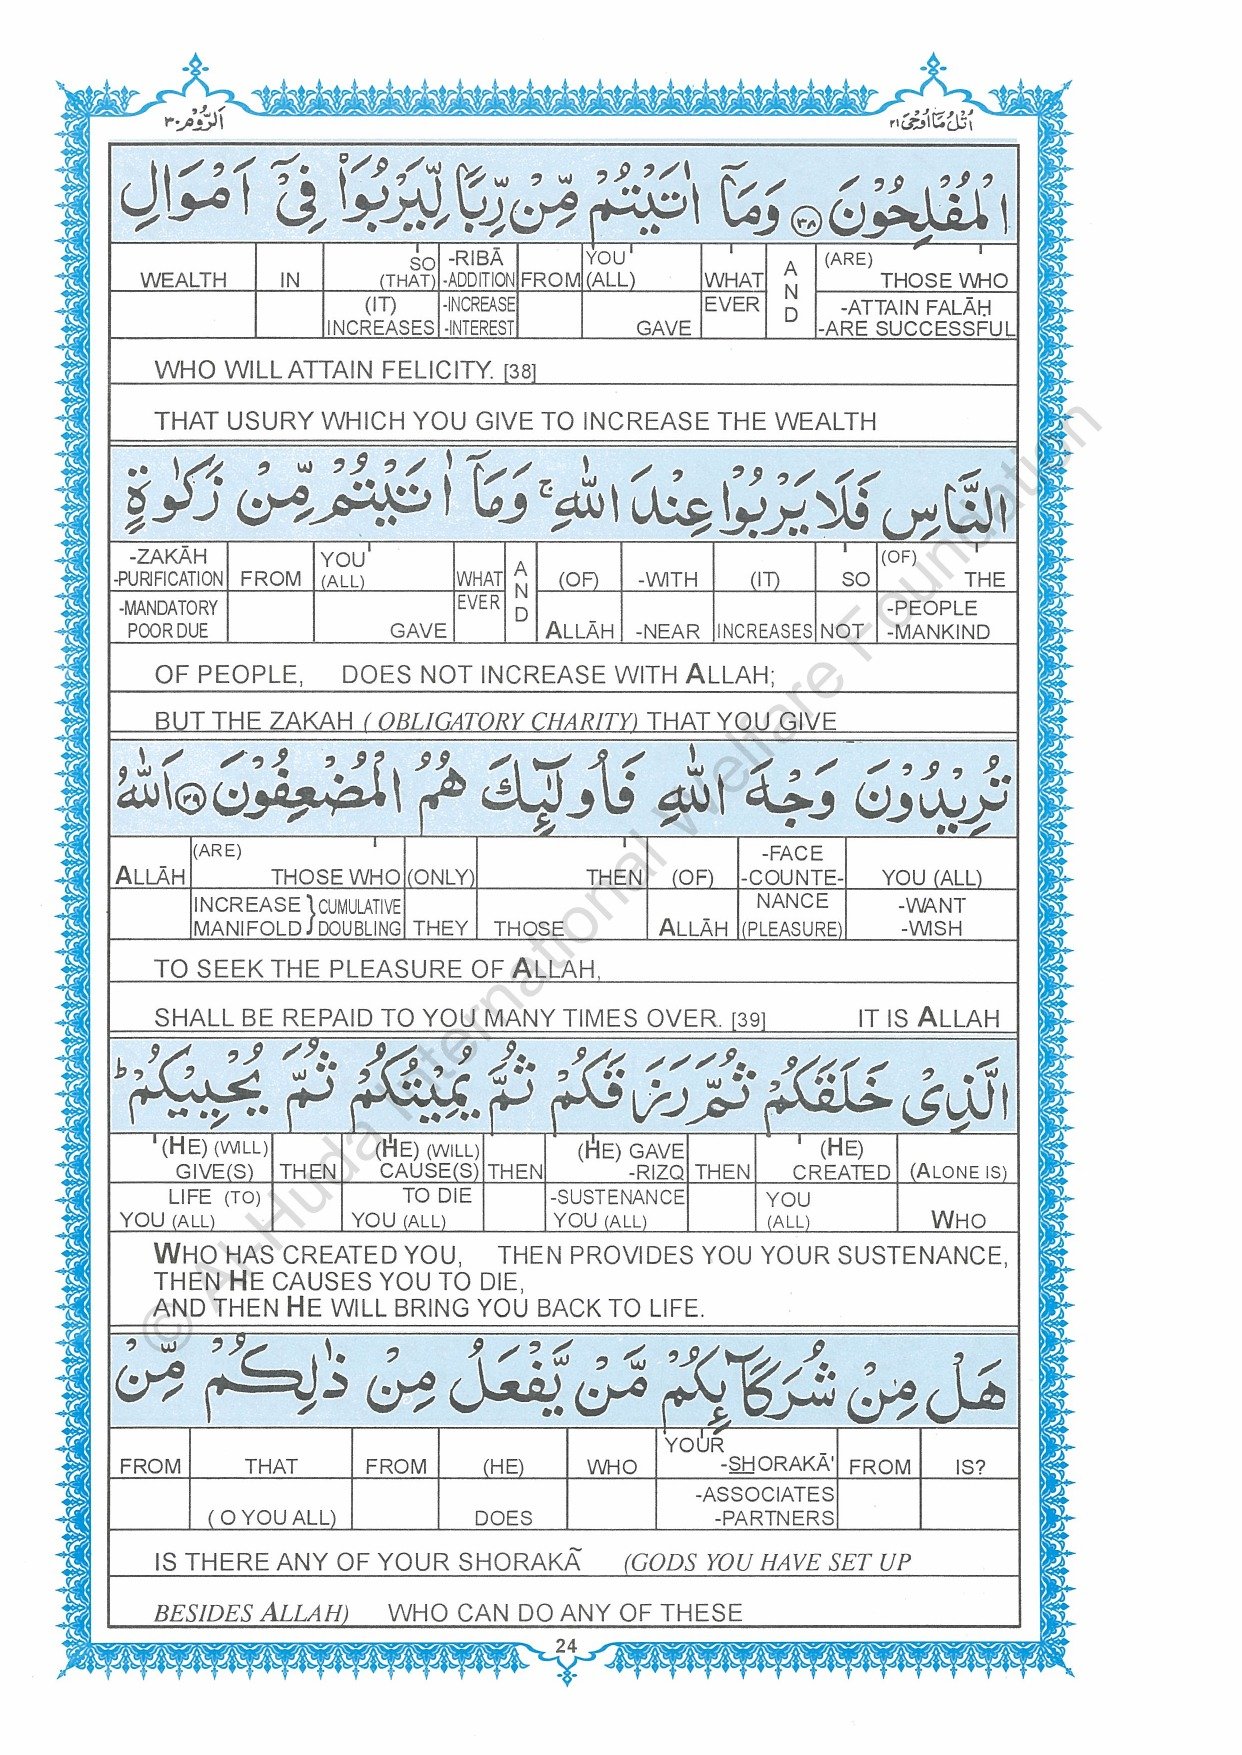 اَلرُّوْم ٣٠ اُتْلُ مَآ اُوْحِیَ ٢١
الْمُفْلِحُوْنَ ﴿٣٨﴾ وَمَاۤ اٰتَیْتُمْ مِّنْ رِّبًا لِّیَرْبُوَا۠ فِیْۤ اَمْوَالِ
WEALTH IN SO (THAT) -RIBĀ -ADDITION FROM YOU (ALL) WHAT AND (ARE) THOSE WHO
(IT) INCREASES -INCREASE -INTEREST GAVE EVER -ATTAIN FALĀḤ -ARE SUCCESSFUL
WHO WILL ATTAIN FELICITY. [38]
THAT USURY WHICH YOU GIVE TO INCREASE THE WEALTH
النَّاسِ فَلَا یَرْبُوْا عِنْدَ اللّٰهِ ۚ وَمَاۤ اٰتَیْتُمْ مِّنْ زَكٰوةٍ
-ZAKĀH -PURIFICATION FROM YOU (ALL) WHAT AND (OF) -WITH (IT) SO (OF) THE
-MANDATORY POOR DUE GAVE EVER ALLĀH -NEAR INCREASES NOT -PEOPLE -MANKIND
OF PEOPLE, DOES NOT INCREASE WITH ALLAH;
BUT THE ZAKAH ( OBLIGATORY CHARITY) THAT YOU GIVE
تُرِیْدُوْنَ وَجْهَ اللّٰهِ فَاُولٰٓىِٕكَ هُمُ الْمُضْعِفُوْنَ ﴿٣٩﴾ اَللّٰهُ
ALLĀH (ARE) THOSE WHO (ONLY) THEN (OF) -FACE -COUNTE- YOU (ALL)
INCREASE MANIFOLD } CUMULATIVE DOUBLING THEY THOSE ALLĀH NANCE (PLEASURE) -WANT -WISH
TO SEEK THE PLEASURE OF ALLAH,
SHALL BE REPAID TO YOU MANY TIMES OVER. [39] IT IS ALLAH
الَّذِیْ خَلَقَكُمْ ثُمَّ رَزَقَكُمْ ثُمَّ یُمِیْتُكُمْ ثُمَّ یُحْیِیْكُمْ ؕ
(HE) (WILL) GIVE(S) THEN (HE) (WILL) CAUSE(S) THEN (HE) GAVE -RIZQ THEN (HE) CREATED (ALONE IS)
LIFE (TO) YOU (ALL) TO DIE YOU (ALL) -SUSTENANCE YOU (ALL) YOU (ALL) WHO
WHO HAS CREATED YOU, THEN PROVIDES YOU YOUR SUSTENANCE,
THEN HE CAUSES YOU TO DIE,
AND THEN HE WILL BRING YOU BACK TO LIFE.
هَلْ مِنْ شُرَكَآىِٕكُمْ مَّنْ یَّفْعَلُ مِنْ ذٰلِكُمْ مِّنْ
FROM THAT FROM (HE) WHO YOUR -SHORAKĀ' FROM IS?
( O YOU ALL) DOES -ASSOCIATES -PARTNERS
IS THERE ANY OF YOUR SHORAKÃ (GODS YOU HAVE SET UP
BESIDES ALLAH) WHO CAN DO ANY OF THESE
24
© Al-Huda International Welfare Foundation